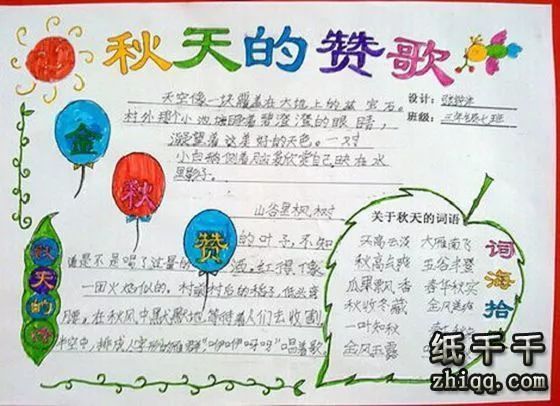 秋天的赞歌
天空像一块覆盖在大地上的蓝宝石。
村外那个小池塘睁着碧澄澄的眼睛，
凝望着这美好的天色。一对
小白鹅侧着脑袋欣赏自己映在水
里影子。
山谷里枫树
的叶子，不知
道是不是喝了过量的酒，红得像
一团火焰似的。村前村后的稻子，低头弯
腰。在秋风中默默地等待着人们去收割
半空中，排成人字形的雁群"咿咿呀呀"唱着歌。
设计：
班级：三年级七班
金
秋
赞
秋天的诗
关于秋天的词语
天高云淡 大雁南飞
秋高气爽 五谷丰登
瓜果飘香 春华秋实
秋收冬藏 金风送
一叶知秋
金风玉露
词海拾
纸千千
zhiqq.com